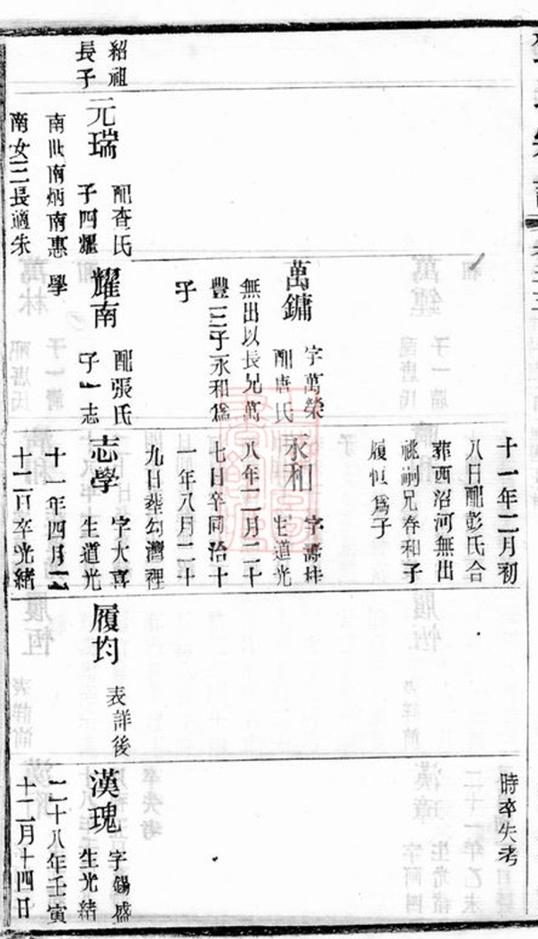 十一年二月初
八日配彭氏合
葬西沼河無出
祧嗣兄春和子
履恒爲子
時卒失考
萬鏞
字萬榮
配唐氏
無出以長兄萬
豐三子永和爲
子
永和
字壽桂
生道光
八年十二月二十
七日卒同治十
一年八月二十
九日葬勾灣裡
紹祖
長子
元瑞
配査氏
子四耀
南世南炳南惠
南女三長適朱
學
耀南
配張氏
子一志
志學
字大喜
生道光
十一年四月
十二日卒光緒
履均
表詳後
漢瑰
字錫盛
生光緒
二十八年壬寅
十二月十四日